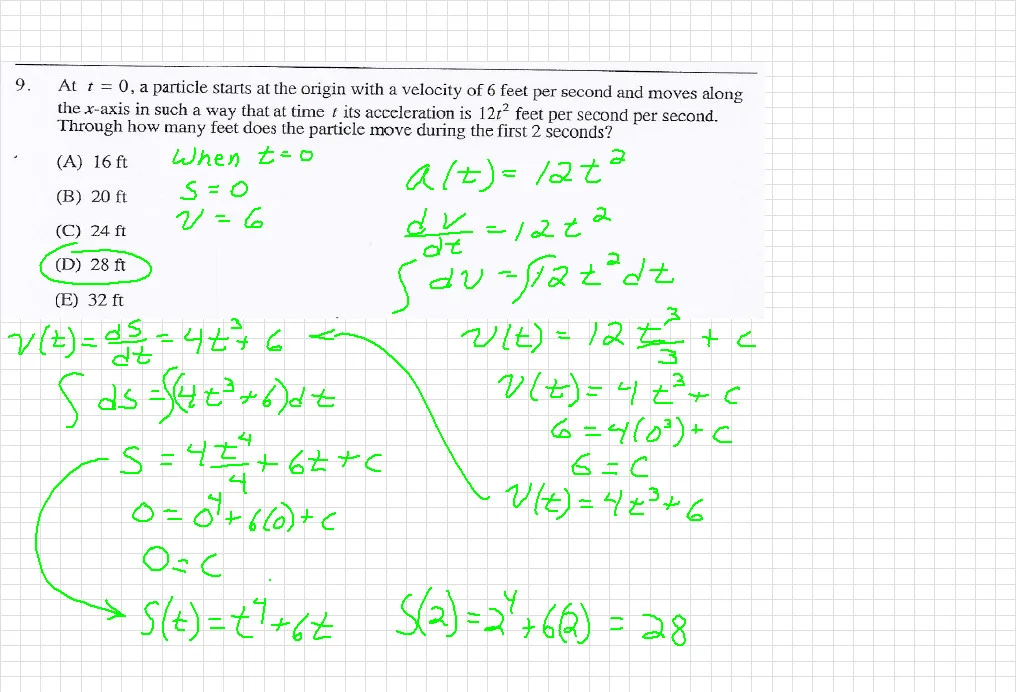 9. At t = 0, a particle starts at the origin with a velocity of 6 feet per second and moves along
the x-axis in such a way that at time t its acceleration is 12t² feet per second per second.
Through how many feet does the particle move during the first 2 seconds?
(A) 16 ft
(B) 20 ft
(C) 24 ft
(D) 28 ft
(E) 32 ft
When t=0
s=0
v=6
a(t)=12t²
dv/dt=12t²
∫dv=∫12t²dt
v(t)=12t³/3+c
v(t)=4t³+c
6=4(0³)+c
6=c
v(t)=4t³+6
v(t)=ds/dt=4t³+6
∫ds=∫(4t³+6)dt
s=4t⁴/4+6t+c
0=0⁴+6(0)+c
0=c
s(t)=t⁴+6t
s(2)=2⁴+6(2)=28